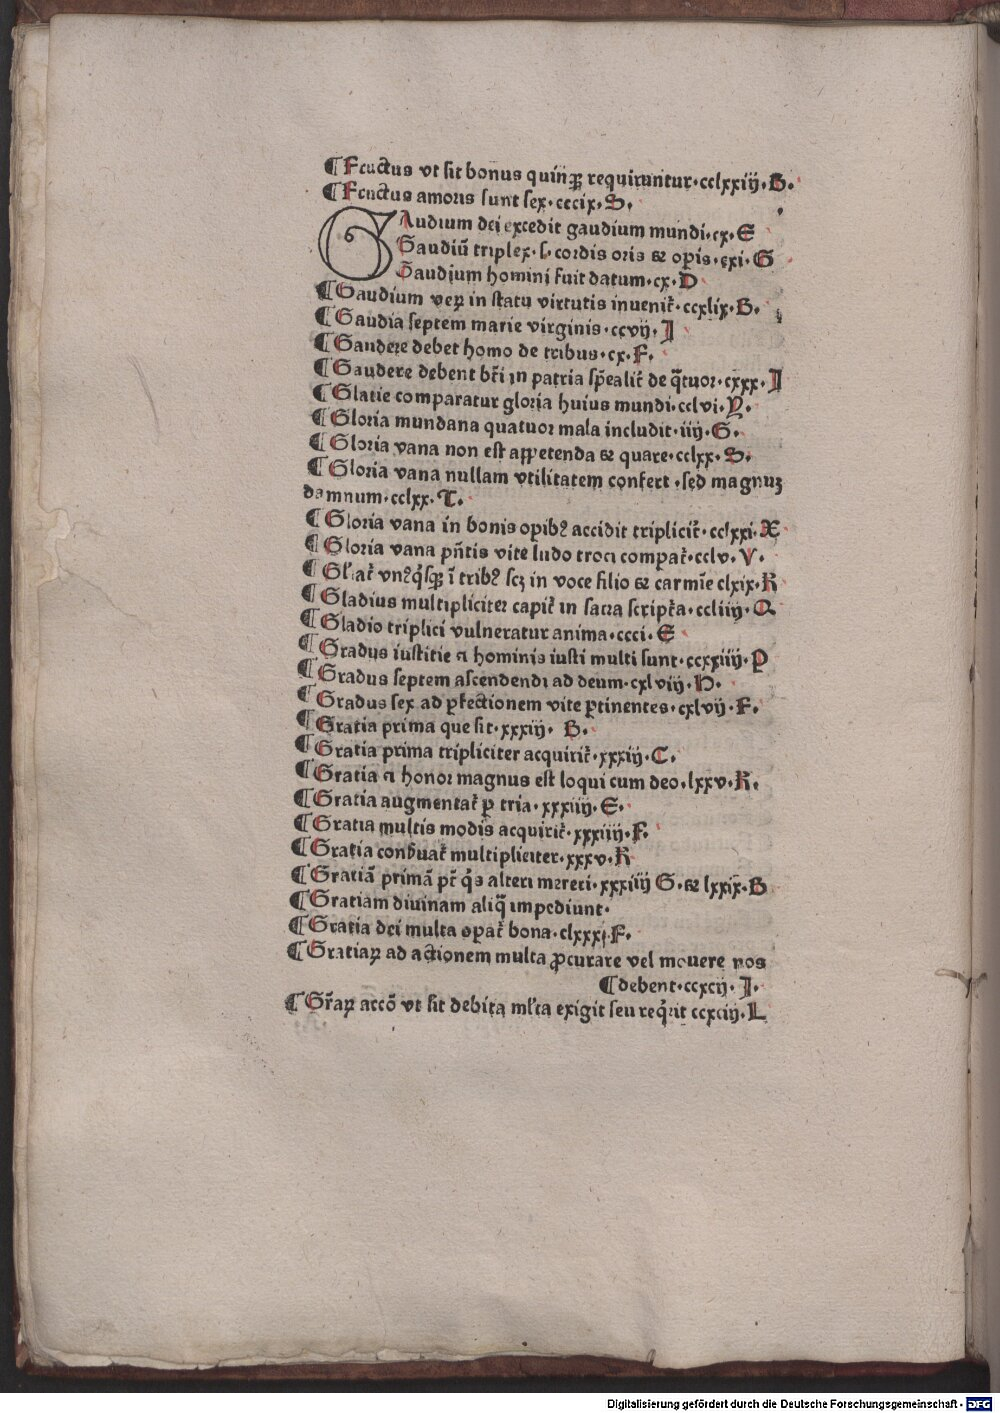 ¶Fructus vt sit bonus quinqꝫ requiruntur·cclxxiij·B·
¶Fructus amoris sunt sex·cccix·S·
GAudium dei excedit gaudium mundi·cx·E
Gaudiū triplex·s·cordis oris ⁊ oꝑis·cxi·G
Gaudium homini fuit datum·cx·D
¶Gaudium veꝝ in statu virtutis inuenit᷑·ccxlix·B·
¶Gaudia septem marie virginis·ccvij·I
¶Gaudere debet homo de tribus·cx·F·
¶Gaudere debent bt̄i in patria sp̄ealit᷑ de q̄tuor·cxxx·I
¶Glacie comparatur gloria huius mundi·cclvi·Y·
¶Gloria mundana quatuor mala includit·iiij·G·
¶Gloria vana non est appetenda ⁊ quare·cclxx·S·
¶Gloria vana nullam vtilitatem confert·sed magnuꝫ
damnum·cclxx·T·
¶Gloria vana in bonis opibꝰ accidit triplicit᷑·cclxxi·X
¶Gloria vana pn̄tis vite ludo troci compat᷑·cclv·V·
¶Gl'iat᷑ vnꝰqͥsqꝫ ī tribꝰ scꝫ in voce filio ⁊ carmīe clxix·K
¶Gladius multipliciter capit᷑ in sacra script᷑a·ccliiij·Q
¶Gladio triplici vulneratur anima·ccci·E
¶Gradus iustitie a hominis iusti multi sunt·ccxxiiij·P
¶Gradus septem ascendendi ad deum·cxlviij·H·
¶Gradus sex ad ꝑfectionem vite ꝑtinentes·cxlvij·F·
¶Gratia prima que sit·xxxiij· B·
¶Gratia prima tripliciter acquirit᷑·xxxiij·C·
¶Gratia a honor magnus est loqui cum deo·lxxv·K·
¶Gratia augmentat᷑ ꝑ tria·xxxiiij·E·
¶Gratia multis modis acquirit᷑·xxxiiij·F·
¶Gratia conẜuat᷑ multipliciter·xxxv·K
¶Gratiā primā pt̄ qͥs alteri mereri·xxxiiij G·⁊ lxxix·B
¶Gratiam diuinam aliq̄ impediunt·
¶Gratia dei multa oꝑat᷑ bona·clxxxi·F·
¶Gratiaꝝ ad actionem multa ꝓcurare vel mouere nos
¶debent·ccxcij·I·
¶Gr̄aꝝ accō vt sit debita ml'ta exigit seu reqͥrit ccxciij·L
Digitalisierung gefördert durch die Deutsche Forschungsgemeinschaft - DFG